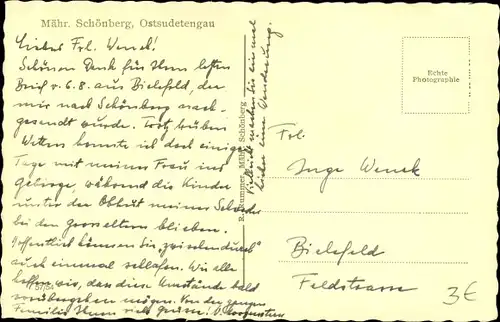 Mähr. Schönberg, Ostsudetengau
Liebes Frl. Wenck!
Schönen Dank für Ihren letzten
Brief v. 6.8. aus Bielefeld, der
mir nach Schönberg nach-
gesandt wurde. Trotz trüben
Wetters konnte ich doch einige
Tage mit meiner Frau ins
Gebirge, während die Kinder
unter der Obhut meiner
bei den Grosseltern blieben.
Hoffentlich können Sie "zwischendurch"
auch einmal schlafen. Wir alle
hoffen wir, dass diese Umstände bald
vorübergehen mögen. Von der ganzen
Familie Ihnen viele Grüsse!
Mähr. Schönberg
Echte
Photographie
Frl.
Inge Wenck
Bielefeld
Feldstrasse
3€